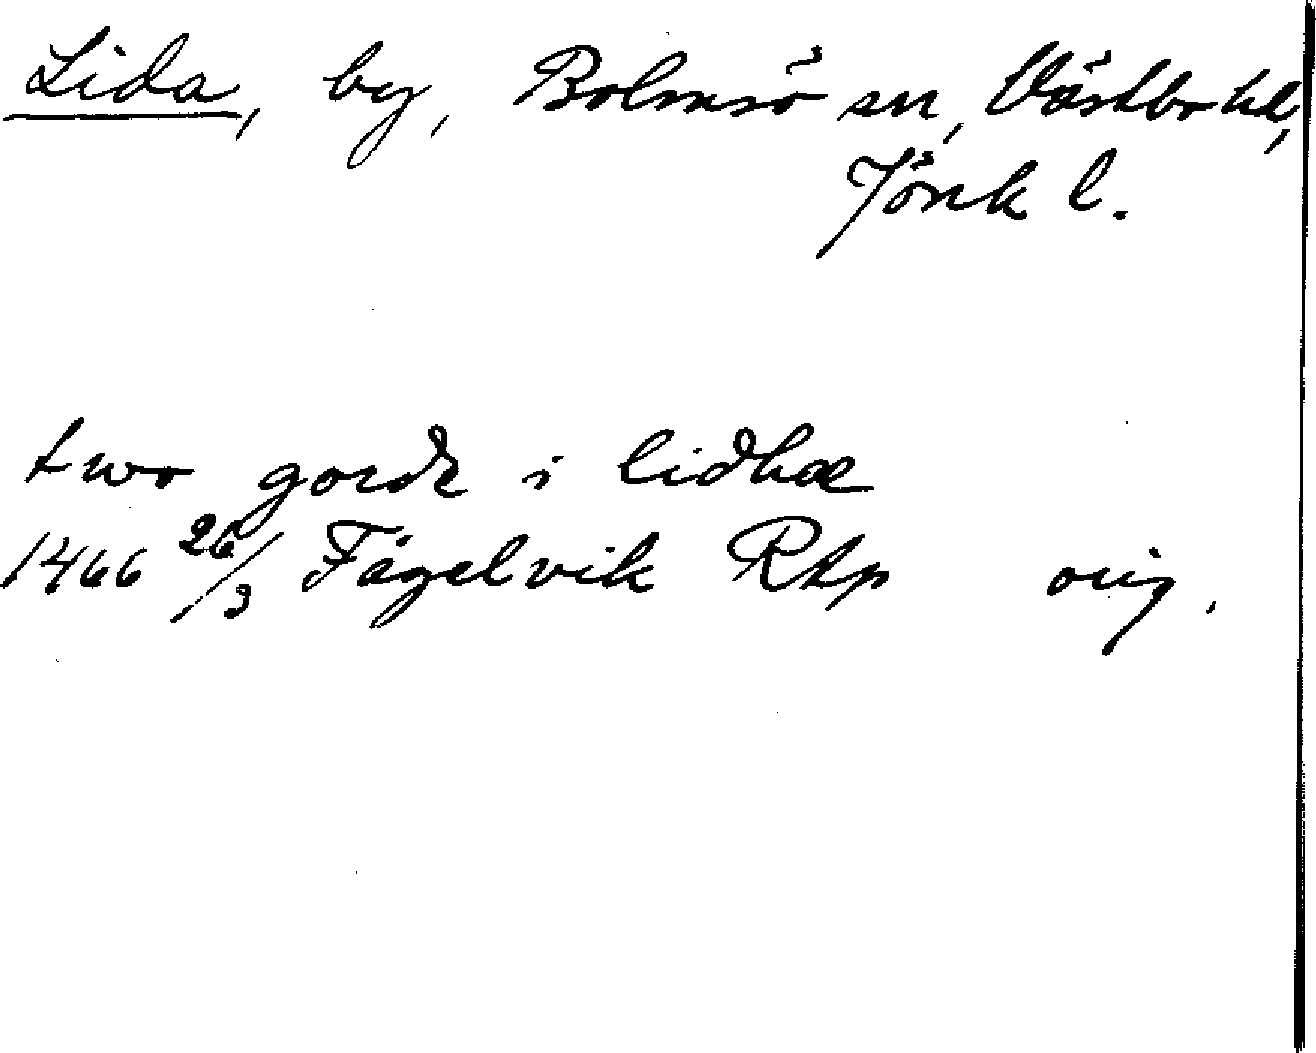 Lida, by, Bolmsö sn, Västbo hd,
Jönk l.
two gorde i lidhæ
1466 26/3 Fågelvik RAp orig.